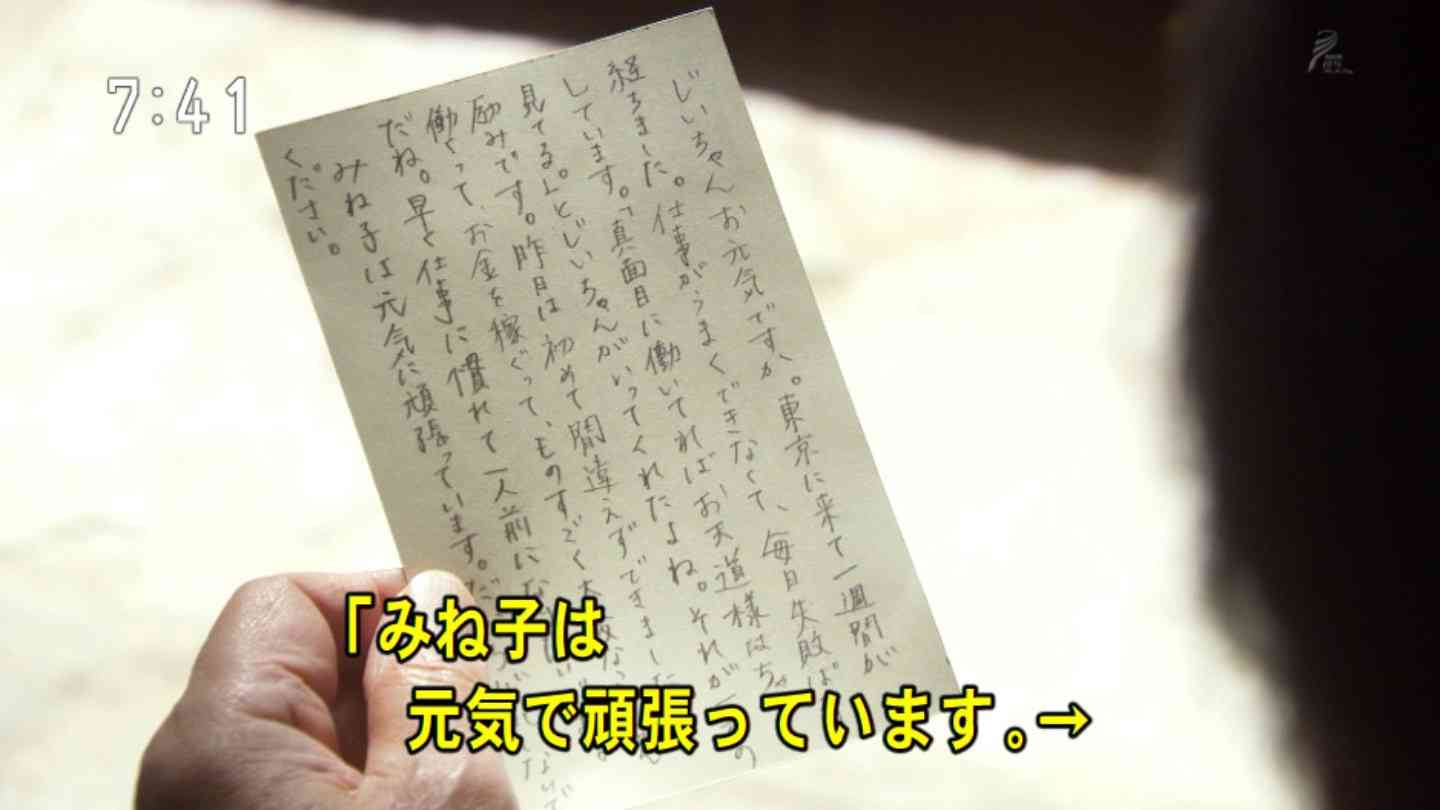 7:41
じいちゃんお元気ですか。東京に来て一週間が
経ちました。仕事がうまくできなくて、毎日失敗ば
しています。「真面目に働いてればお天道様はちゃ
見てる」とじいちゃんがいってくれたよね。それが一
励みです。昨日は初めて間違えずできました
働くって、お金を稼ぐって、ものすごく大変な
だね。早く仕事に慣れて一人前にな
みね子は元気に頑張っています。
ください。
「みね子は
元気で頑張っています。→